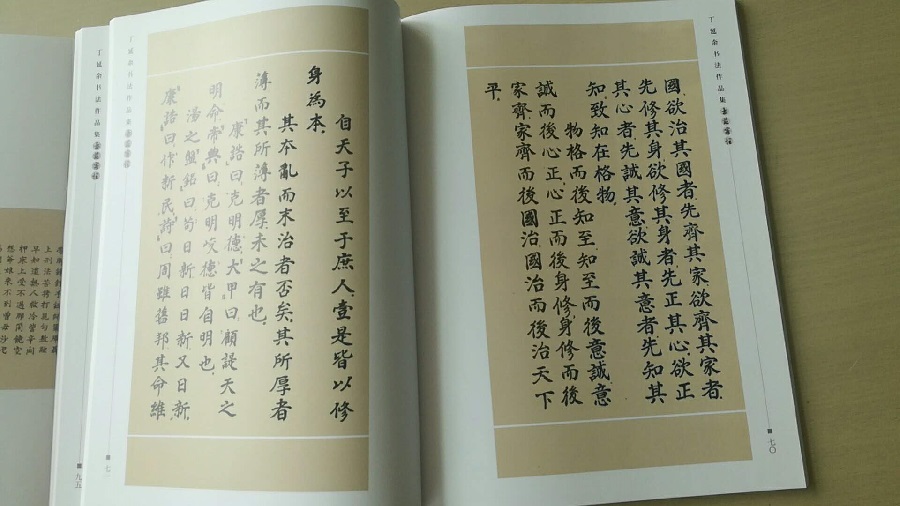 書法作品集
國,欲治其國者,先齊其家欲齊其家者
先修其身,欲修其身者,先正其心,欲正
其心者,先誠其意欲誠其意者先知其
知,致知在格物.
物格而後知至,知至而後意誠意
誠而後心正,心正而後身修,身修而後
家齊,家齊而後國治國治而後治天下
平.
七〇
自天子以至于庶人,壹是皆以修
身為本.
其本亂而末治者否矣,其所厚者
薄而其所薄者厚,未之有也.
康誥曰,克明德,大甲曰顧諟天之
明命,帝典曰克明峻德皆自明也.
湯之盤銘曰苟日新日日新又日新.
康誥曰,作新民,詩曰周雖舊邦其命維
九五